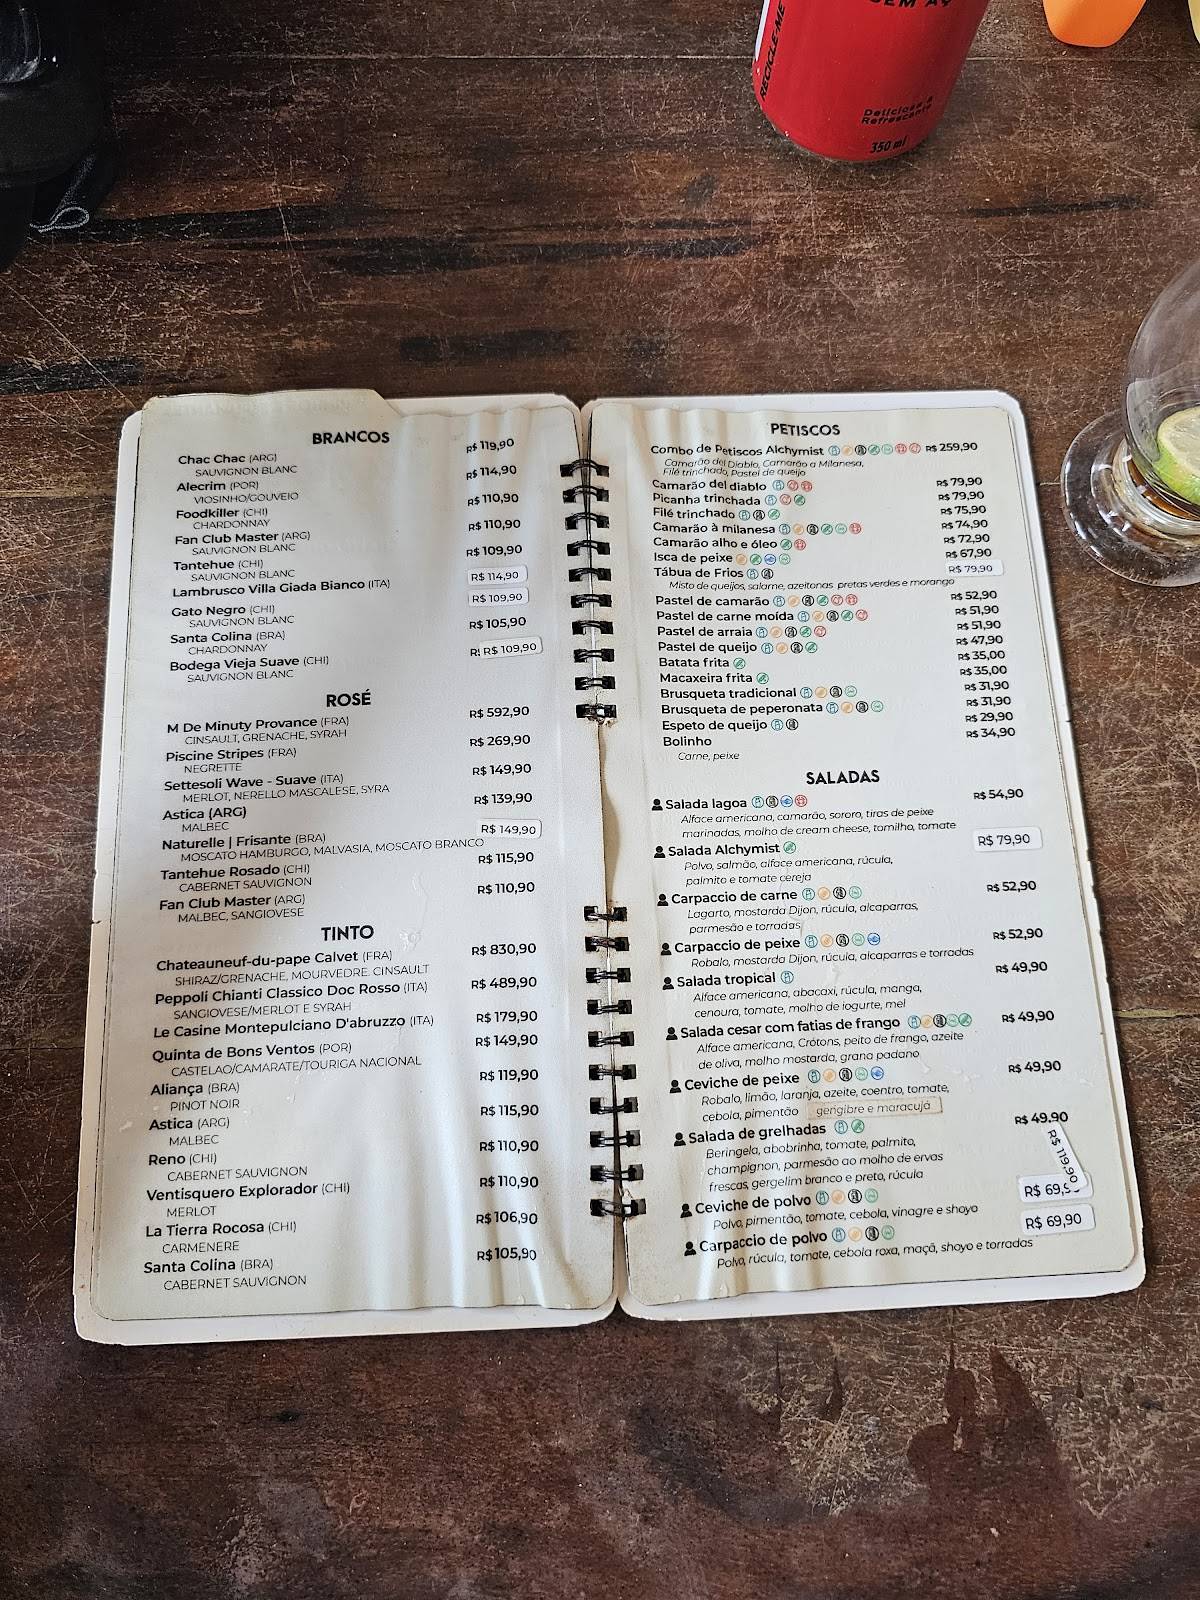 RECICLE-ME
Delicioso e
Refrescante
350 ml
BRANCOS
Chac Chac (ARG) R$ 119,90
SAUVIGNON BLANC
Alecrim (POR) R$ 114,90
VIOSINHO/GOUVEIO
Foodkiller (CHI) R$ 110,90
CHARDONNAY
Fan Club Master (ARG) R$ 110,90
SAUVIGNON BLANC
Tantehue (CHI) R$ 109,90
SAUVIGNON BLANC
Lambrusco Villa Giada Bianco (ITA) R$ 114,90
Gato Negro (CHI) R$ 109,90
SAUVIGNON BLANC
Santa Colina (BRA) R$ 105,90
CHARDONNAY
Bodega Vieja Suave (CHI) R$ 109,90
SAUVIGNON BLANC
ROSÉ
M De Minuty Provance (FRA) R$ 592,90
CINSAULT, GRENACHE, SYRAH
Piscine Stripes (FRA) R$ 269,90
NEGRETTE
Settesoli Wave - Suave (ITA) R$ 149,90
MERLOT, NERELLO MASCALESE, SYRA
Astica (ARG) R$ 139,90
MALBEC
Naturelle | Frisante (BRA) R$ 149,90
MOSCATO HAMBURGO, MALVASIA, MOSCATO BRANCO
Tantehue Rosado (CHI) R$ 115,90
CABERNET SAUVIGNON
Fan Club Master (ARG) R$ 110,90
MALBEC, SANGIOVESE
TINTO
Chateauneuf-du-pape Calvet (FRA) R$ 830,90
SHIRAZ/GRENACHE, MOURVEDRE. CINSAULT
Peppoli Chianti Classico Doc Rosso (ITA) R$ 489,90
SANGIOVESE/MERLOT E SYRAH
Le Casine Montepulciano D'abruzzo (ITA) R$ 179,90
Quinta de Bons Ventos (POR) R$ 149,90
CASTELAO/CAMARATE/TOURIGA NACIONAL
Aliança (BRA) R$ 119,90
PINOT NOIR
Astica (ARG) R$ 115,90
MALBEC
Reno (CHI) R$ 110,90
CABERNET SAUVIGNON
Ventisquero Explorador (CHI) R$ 110,90
MERLOT
La Tierra Rocosa (CHI) R$ 106,90
CARMENERE
Santa Colina (BRA) R$ 105,90
CABERNET SAUVIGNON
PETISCOS
Combo de Petiscos Alchymist R$ 259,90
Camarão del Diablo, Camarão a Milanesa,
Filé trinchado, Pastel de queijo
Camarão del diablo R$ 79,90
Picanha trinchada R$ 79,90
Filé trinchado R$ 75,90
Camarão à milanesa R$ 74,90
Camarão alho e óleo R$ 72,90
Isca de peixe R$ 67,90
Tábua de Frios R$ 79,90
Misto de queijos, salame, azeitonas pretas verdes e morango
Pastel de camarão R$ 52,90
Pastel de carne moída R$ 51,90
Pastel de arraia R$ 51,90
Pastel de queijo R$ 47,90
Batata frita R$ 35,00
Macaxeira frita R$ 35,00
Brusqueta tradicional R$ 31,90
Brusqueta de peperonata R$ 31,90
Espeto de queijo R$ 29,90
Bolinho R$ 34,90
Carne, peixe
SALADAS
Salada lagoa R$ 54,90
Alface americana, camarão, sororo, tiras de peixe
marinadas, molho de cream cheese, tomilho, tomate
Salada Alchymist R$ 79,90
Polvo, salmão, alface americana, rúcula,
palmito e tomate cereja
Carpaccio de carne R$ 52,90
Lagarto, mostarda Dijon, rúcula, alcaparras,
parmesão e torradas
Carpaccio de peixe R$ 52,90
Robalo, mostarda Dijon, rúcula, alcaparras e torradas
Salada tropical R$ 49,90
Alface americana, abacaxi, rúcula, manga,
cenoura, tomate, molho de iogurte, mel
Salada cesar com fatias de frango R$ 49,90
Alface americana, Crótons, peito de frango, azeite
de oliva, molho mostarda, grana padano
Ceviche de peixe R$ 49,90
Robalo, limão, laranja, azeite, coentro, tomate,
cebola, pimentão gengibre e maracujá
Salada de grelhadas R$ 49,90
Beringela, abobrinha, tomate, palmito,
champignon, parmesão ao molho de ervas
frescas, gergelim branco e preto, rúcula
R$ 119,90
Ceviche de polvo R$ 69,
Polvo, pimentão, tomate, cebola, vinagre e shoyo
Carpaccio de polvo R$ 69,90
Polvo, rúcula, tomate, cebola roxa, maçã, shoyo e torradas